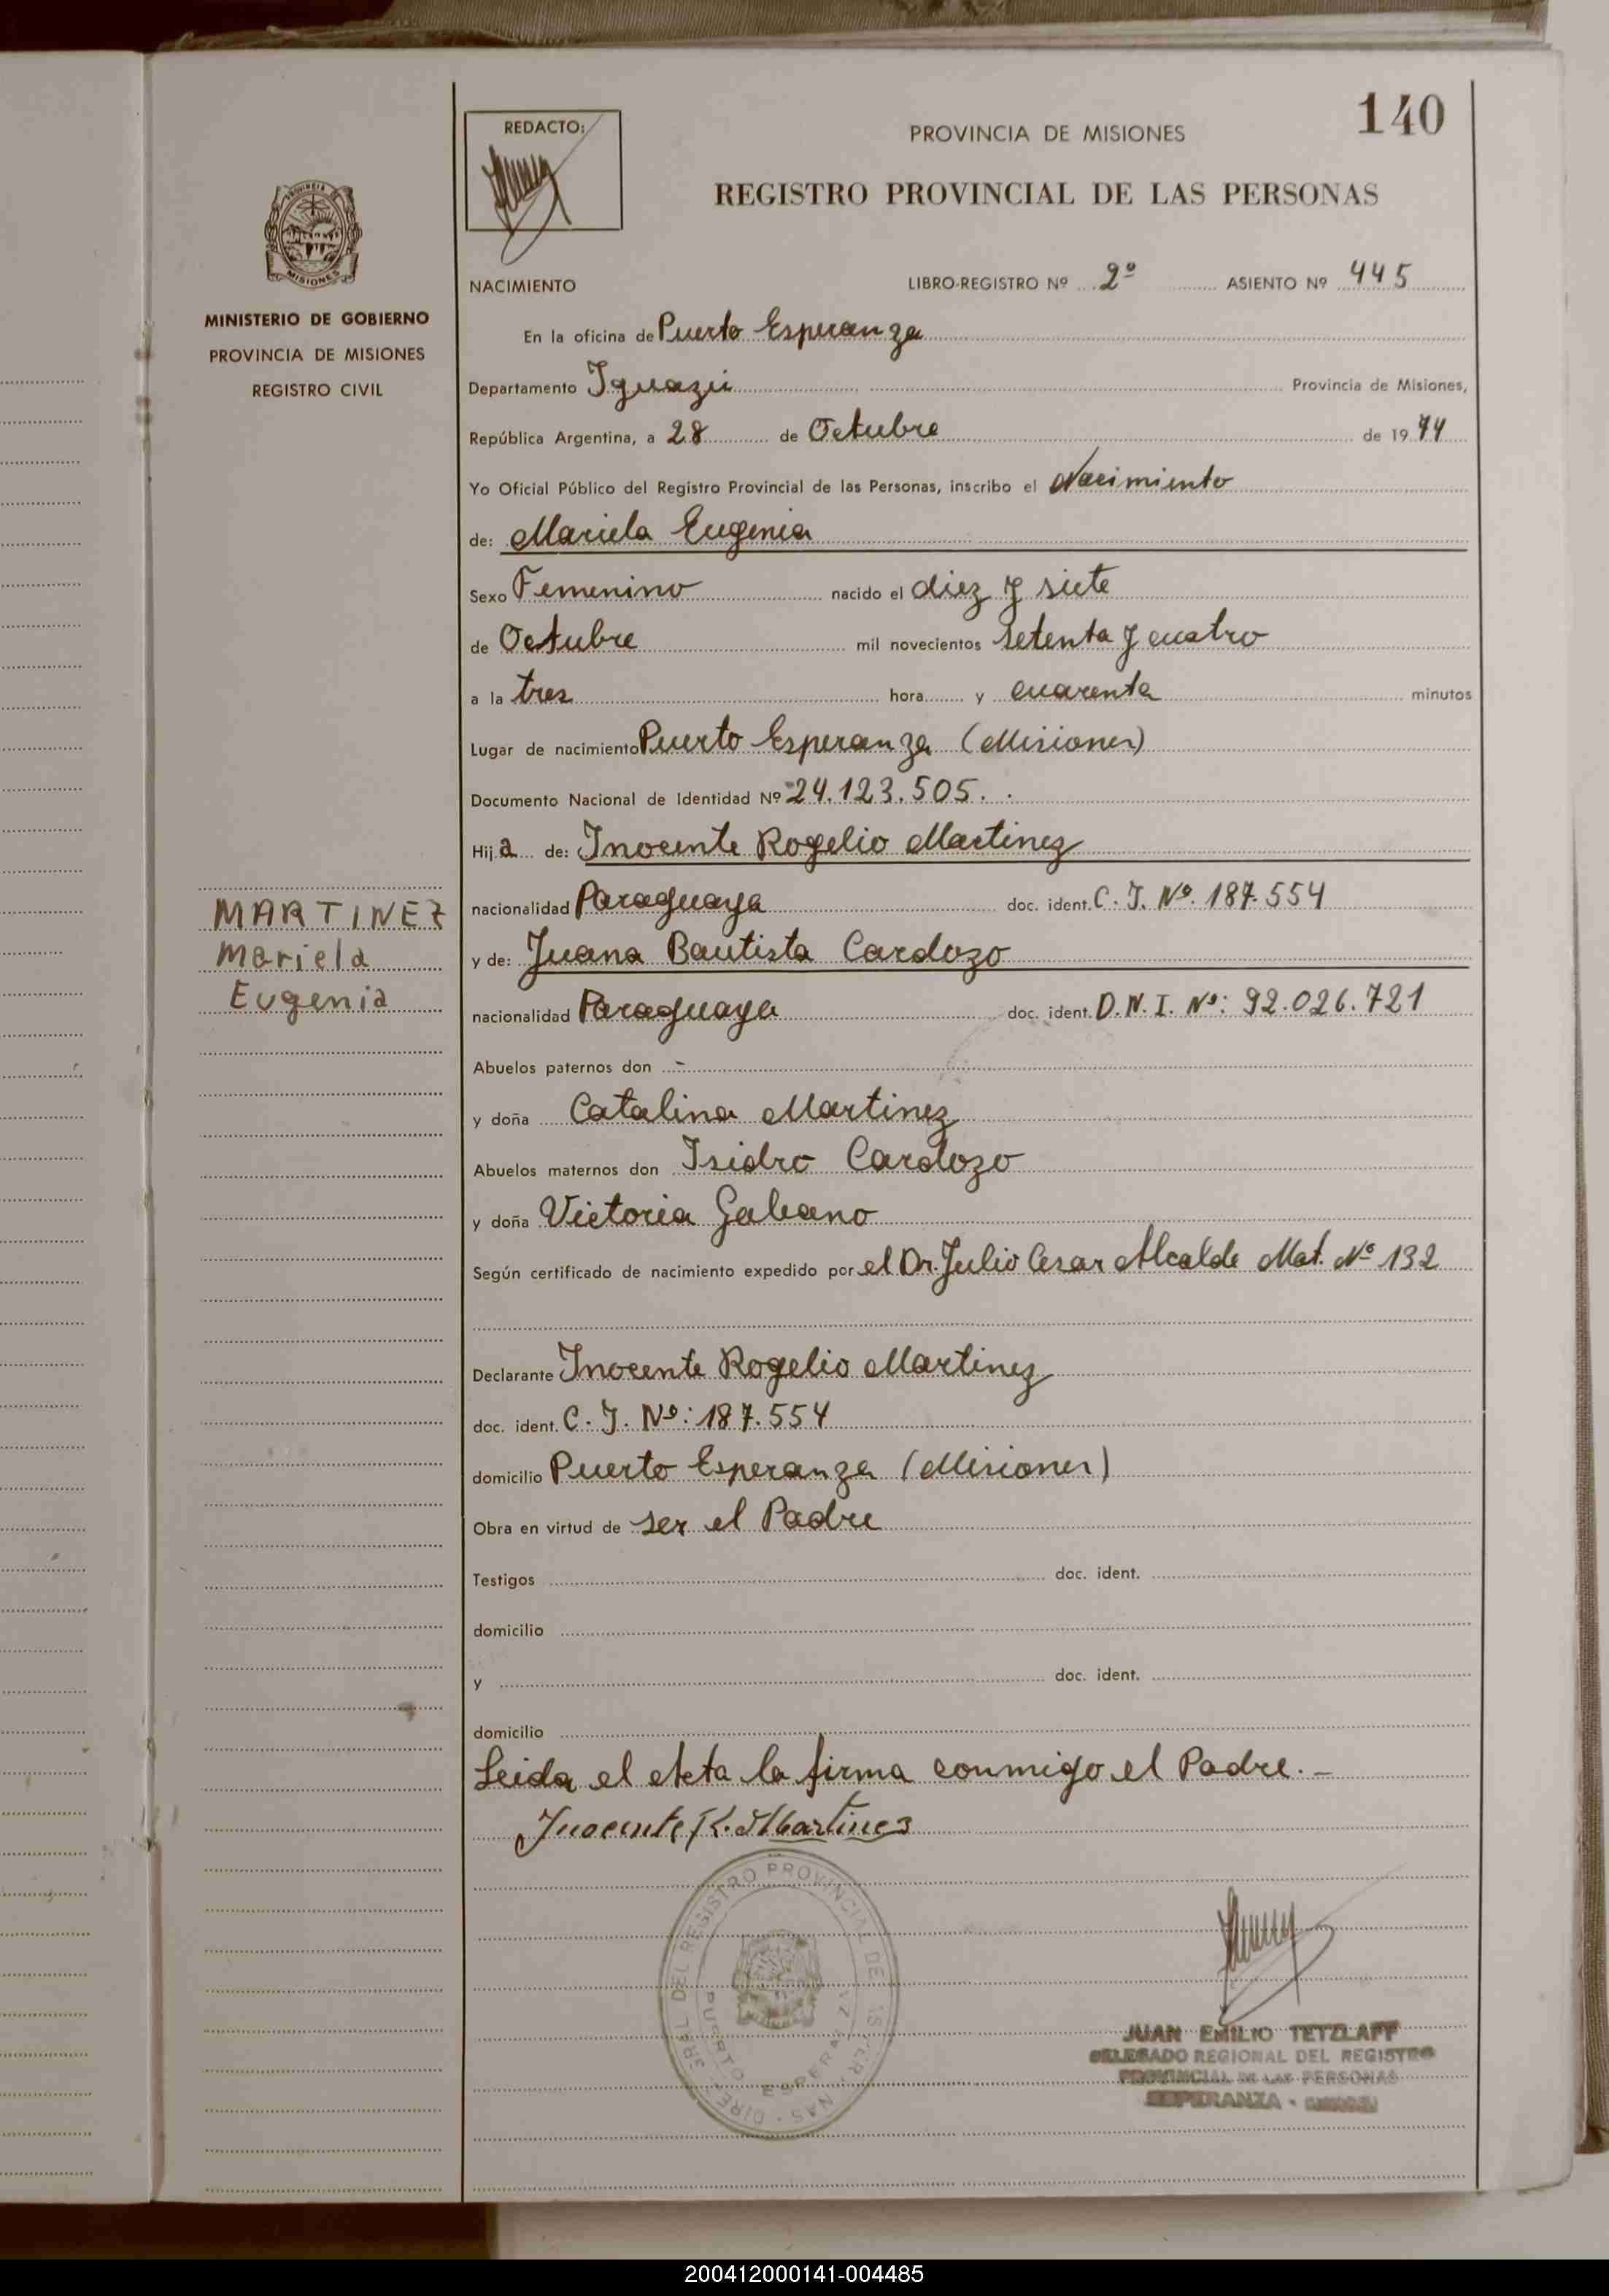 140
REDACTO:
PROVINCIA DE MISIONES
REGISTRO PROVINCIAL DE LAS PERSONAS
MISIONES
MINISTERIO DE GOBIERNO
PROVINCIA DE MISIONES
REGISTRO CIVIL
NACIMIENTO LIBRO-REGISTRO Nº 2º ASIENTO Nº 445
En la oficina de Puerto Esperanza
Departamento Iguazú Provincia de Misiones,
República Argentina, a 28 de Octubre de 1974
Yo Oficial Público del Registro Provincial de las Personas, inscribo el Nacimiento
de: Mariela Eugenia
Sexo Femenino nacido el diez y siete
de Octubre mil novecientos setenta y cuatro
a la tres hora y cuarenta minutos
Lugar de nacimiento Puerto Esperanza (Misiones)
Documento Nacional de Identidad Nº 24.123.505.
Hija de: Inocente Rogelio Martinez
nacionalidad Paraguaya doc. ident. C. I. Nº. 187.554
y de: Juana Bautista Cardozo
nacionalidad Paraguaya doc. ident. D.N.I. Nº: 92.026.721
MARTINEZ
Mariela
Eugenia
Abuelos paternos don -
y doña Catalina Martinez
Abuelos maternos don Isidro Cardozo
y doña Victoria Galeano
Según certificado de nacimiento expedido por el Dr. Julio Cesar Alcalde Mat. Nº 132
Declarante Inocente Rogelio Martinez
doc. ident. C. I. Nº: 187.554
domicilio Puerto Esperanza (Misiones)
Obra en virtud de ser el Padre
Testigos doc. ident.
domicilio
y doc. ident.
domicilio
Leida el Acta la firma conmigo el Padre. -
Inocente R. Martinez
PUERTO ESPERANZA
JUAN EMILIO TETZLAFF
DELEGADO REGIONAL DEL REGISTRO
PROVINCIAL DE LAS PERSONAS
ESPERANZA -
200412000141-004485